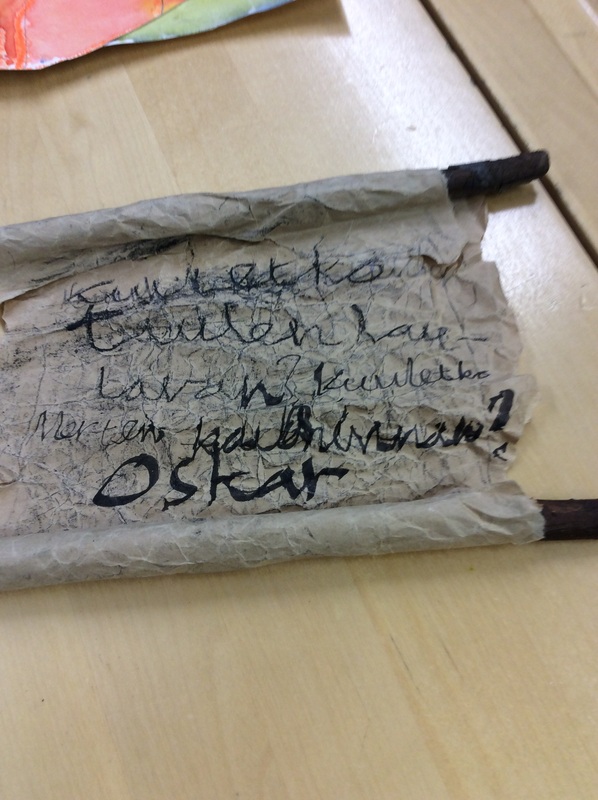 Kuuletko
tuulen lau-
lavan? Kuuletko
Merten
Oskar